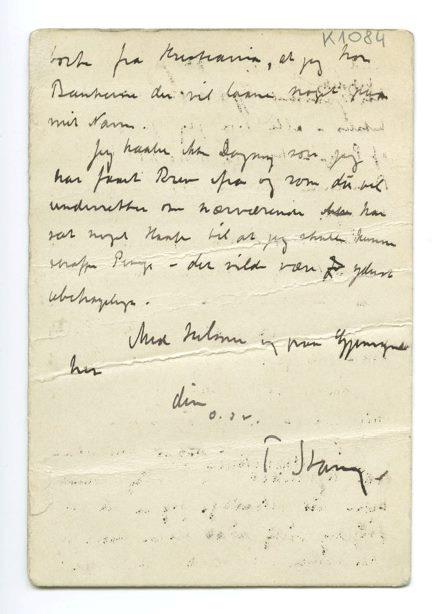 K1084
borte fra Kristiania, at jeg tror
Bankerne der vil laane noget paa
mit Navn.
Jeg haaber ikke som jeg
har faaet Brev fra og som du vil
underrette om nærværende har
sat noget Haab til at jeg skulde kunne
skaffe Penge – det vilde være yderst
ubehagelig.
Med Hilsen og fra
her
din
o.s.v.
T. Stang